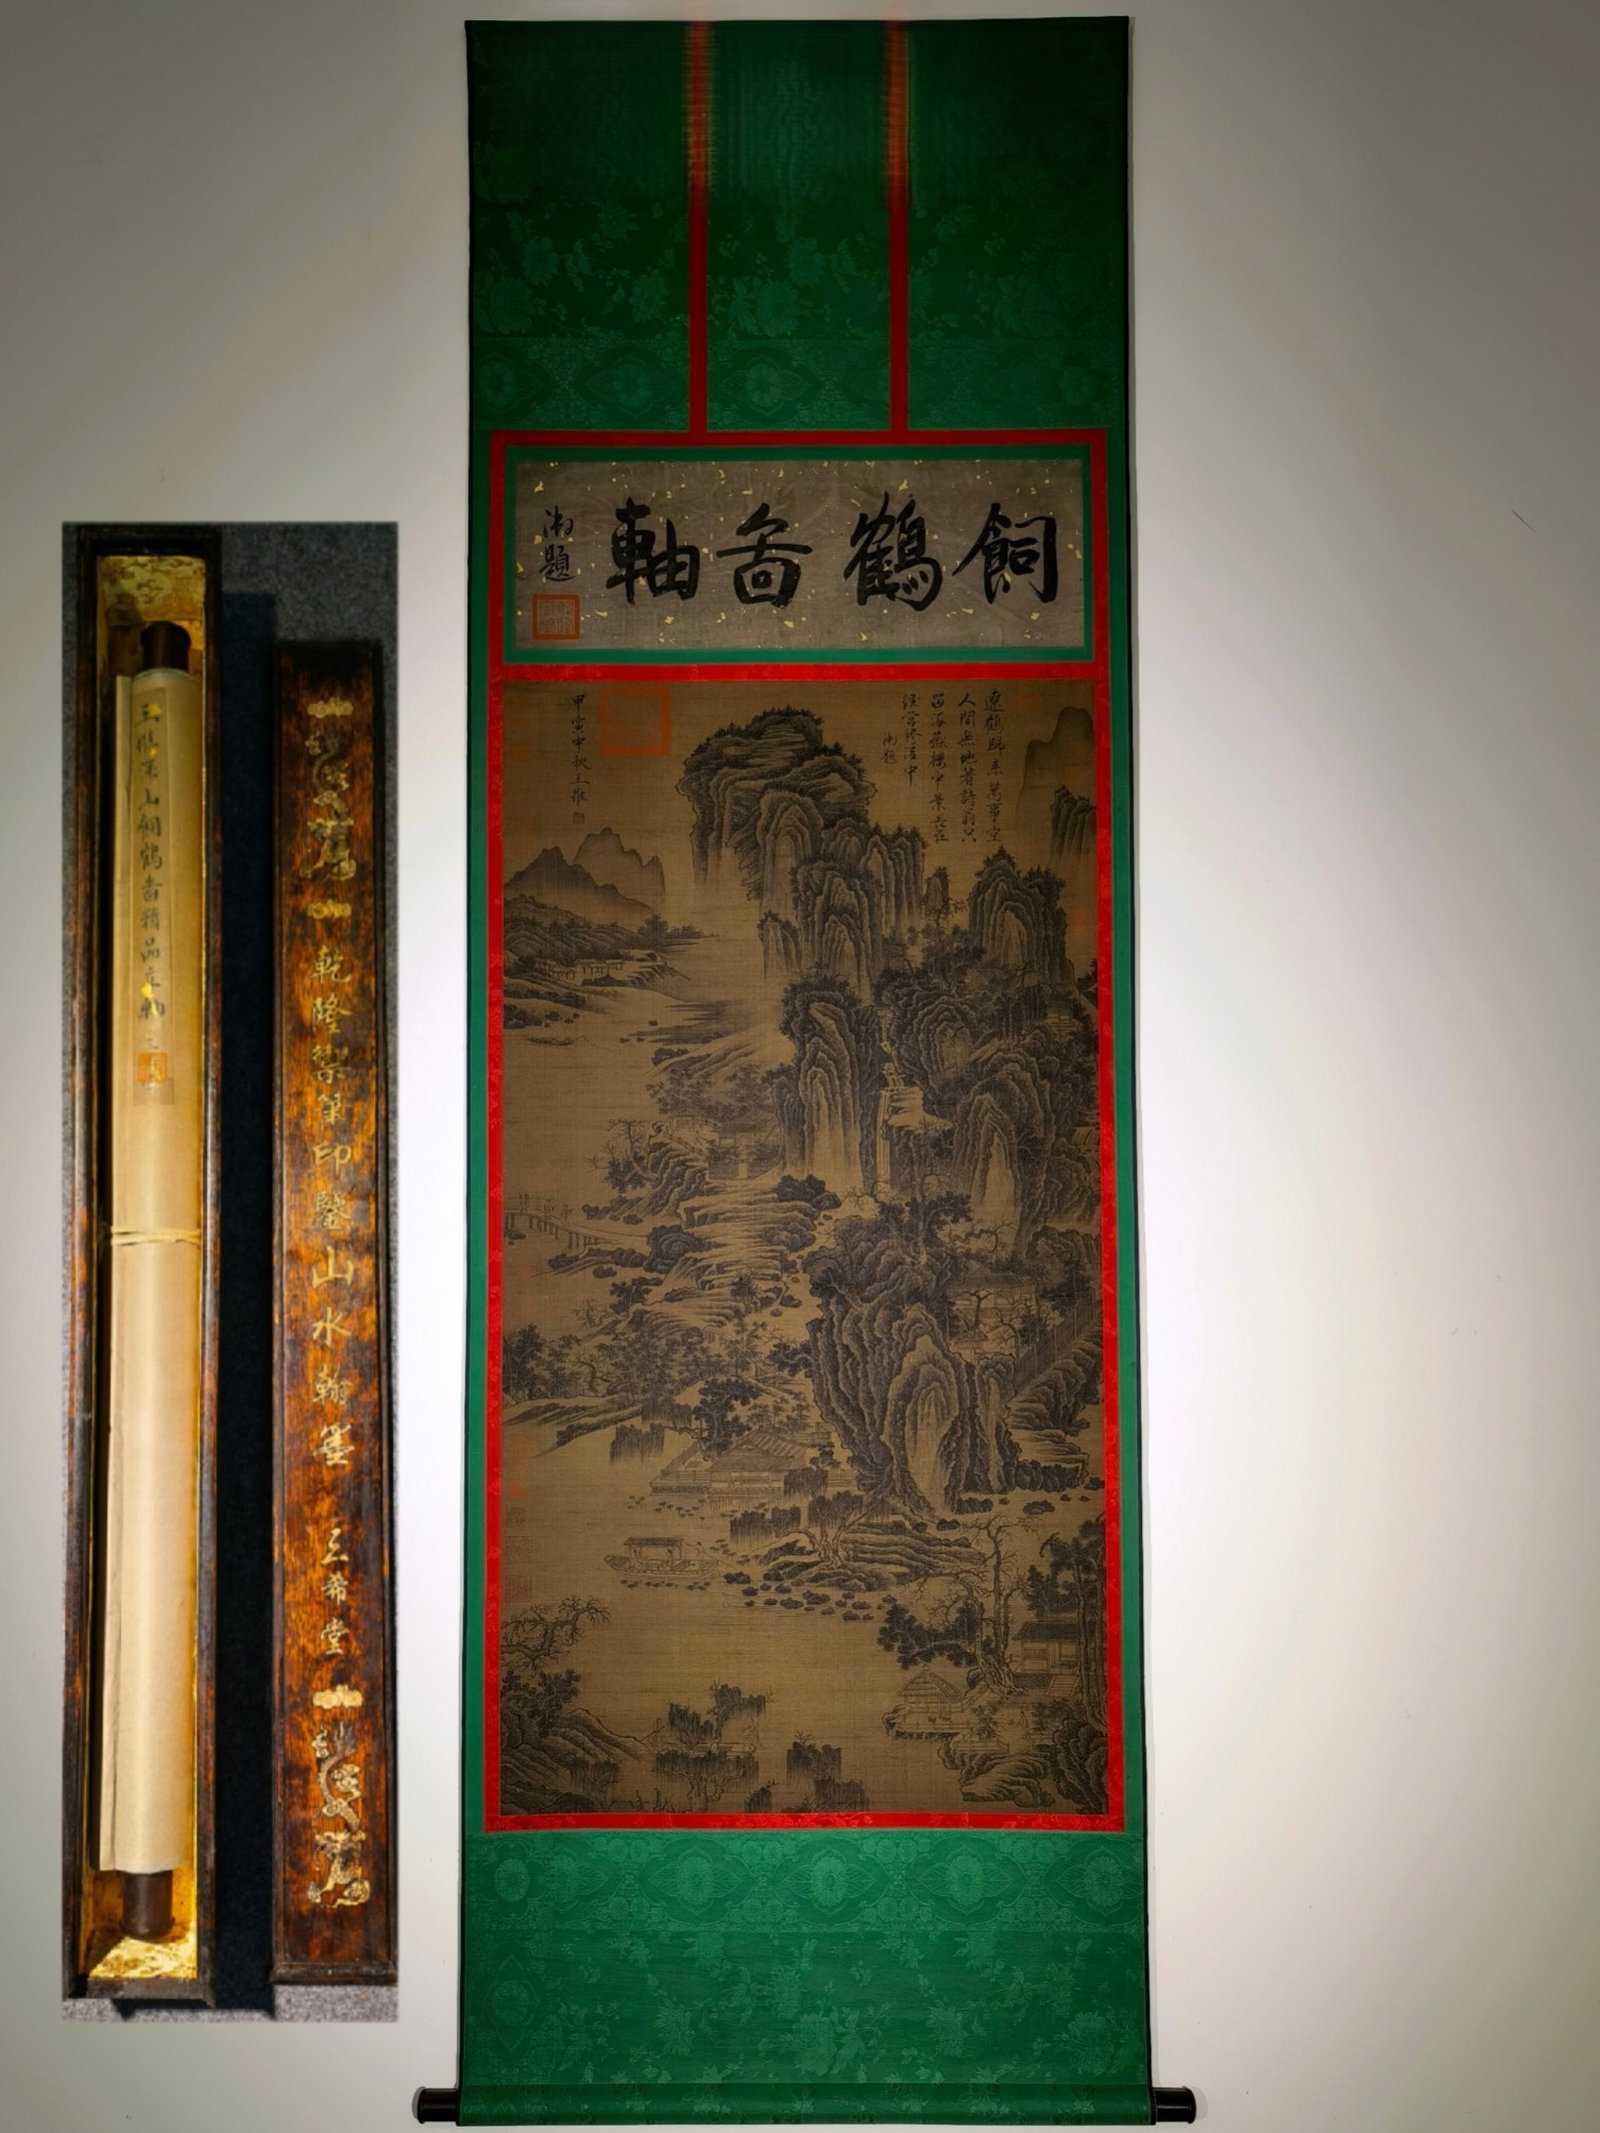 飼鶴啚軸
御題
遼鶴歸來萬事空
人間無地著詩翁只
留海嶽樓中景長在
經營慘澹中
御題
甲寅中秋王維
乾隆禦筆印鑒山水翰墨
三希堂
山飼鶴啚精品立軸